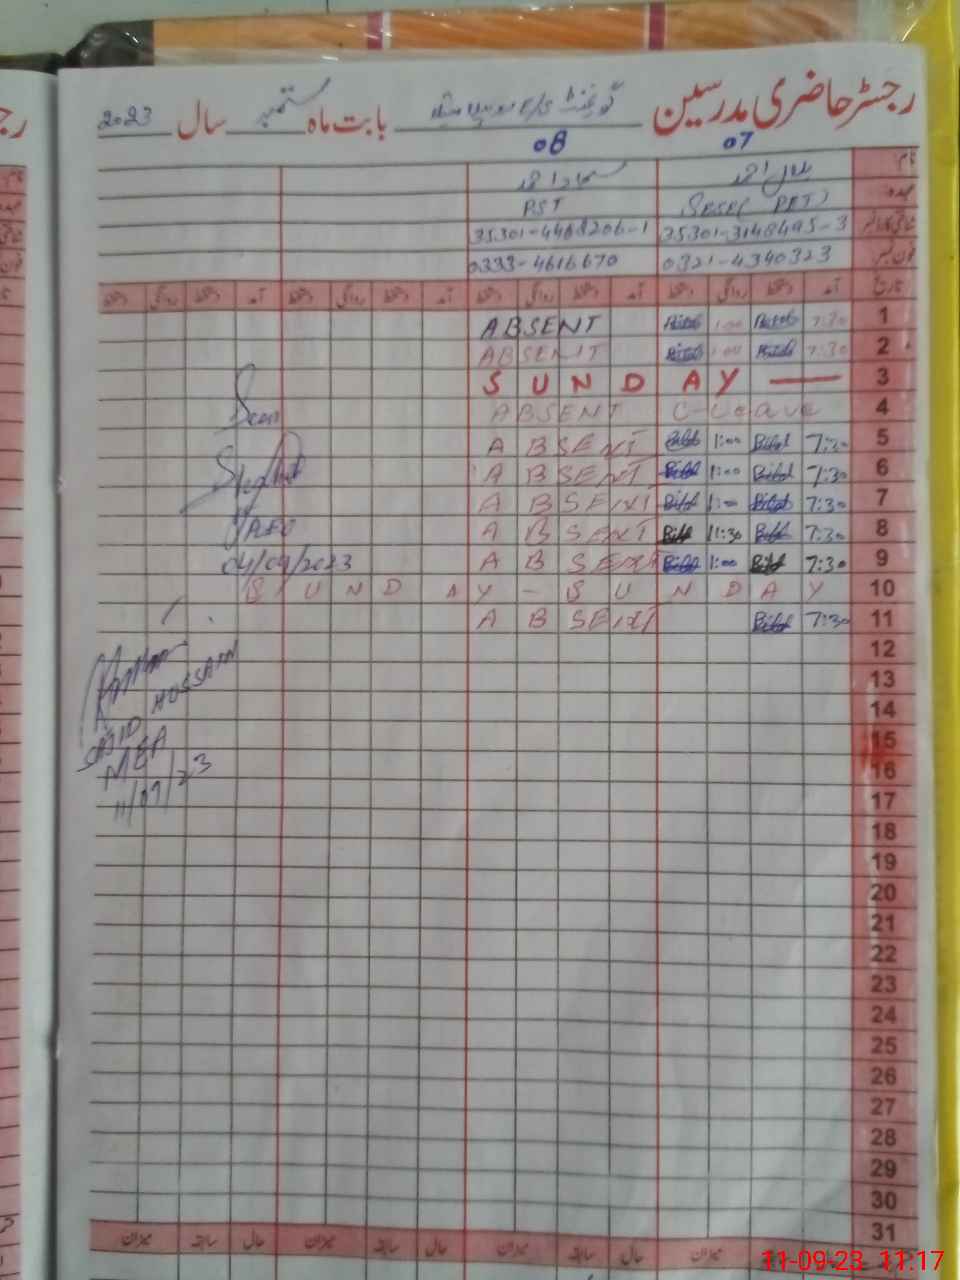 رجسٹر حاضری مدرسین گورنمنٹ بابت ماہ ستمبر سال 2023
08 07
نام بلال احمد احمد
عہدہ PST
شناختی کارڈ نمبر 35301-3148495-3 35301-4468206-1
فون نمبر 0321-4340323 0333-4616670
تاریخ آمد دستخط روانگی دستخط آمد دستخط روانگی دستخط آمد دستخط روانگی دستخط آمد دستخط روانگی دستخط
ABSENT 1:00 7:30 1
ABSENT 1:00 7:30 2
SUNDAY 3
ABSENT C-Leave 4
ABSENT 1:00 7:30 5
ABSENT 1:00 7:30 6
ABSENT 1:00 7:30 7
ABSENT 11:30 7:30 8
ABSENT 1:00 7:30 9
SUNDAY - SUNDAY 10
ABSENT 7:30 11
12
13
14
15
16
17
18
19
20
21
22
23
24
25
26
27
28
29
30
31
Seen
AEO
04/09/2023
SAJID HUSSAIN
MEA
11/09/23
حال سابقہ میزان حال سابقہ میزان حال سابقہ میزان میزان
11-09-23 11:17